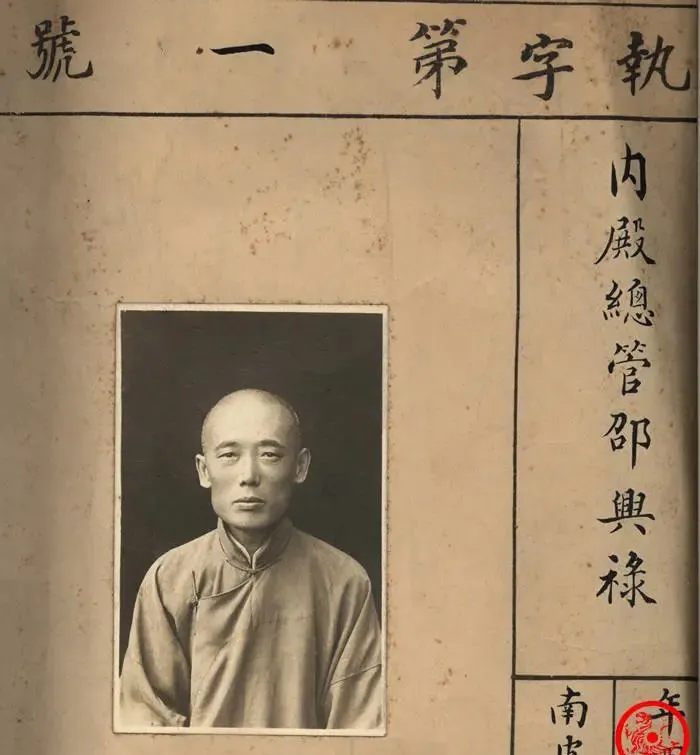 執字第一號
內殿總管邵興祿
年
南皮